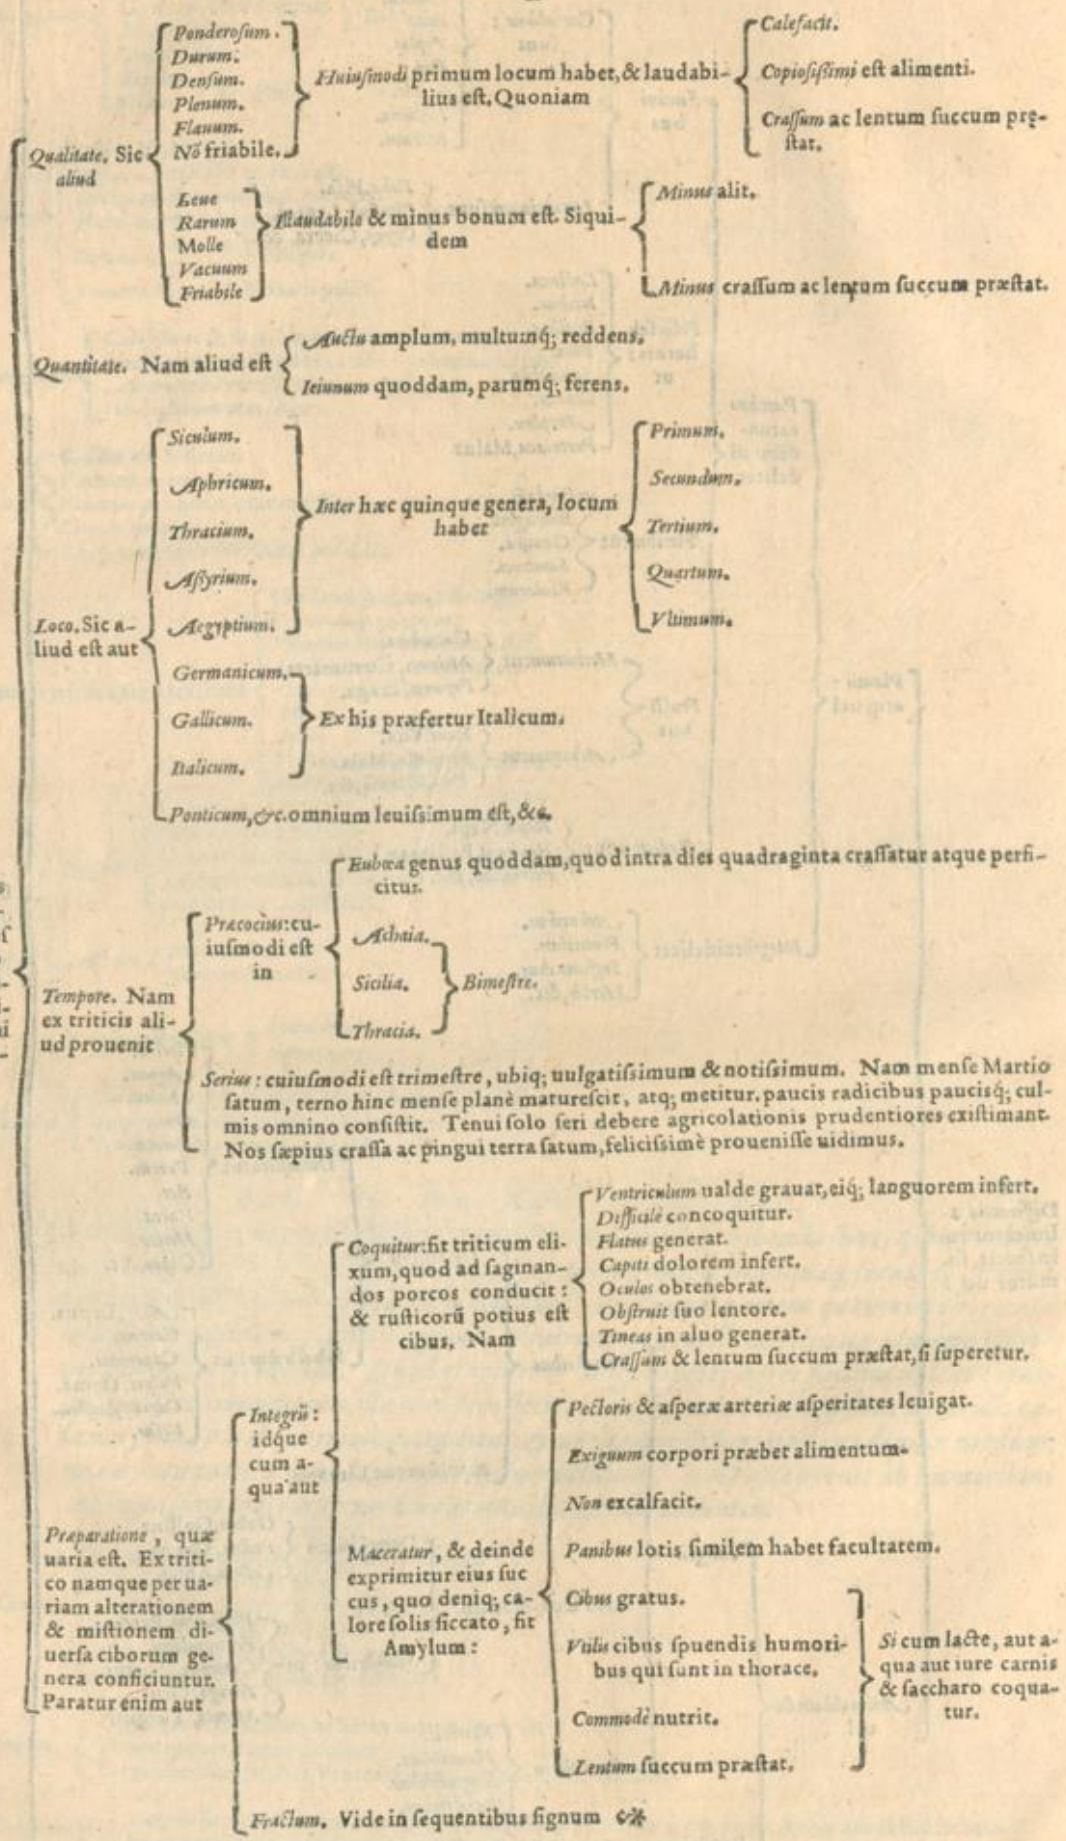 Ponderoſum.
Durum.
Denſum.
Plenum.
Flauum.
Nõ friabile.
Qualitate. Sic
aliud
Huiuſmodi primum locum habet, & laudabi-
lius eſt. Quoniam
Calefacit.
Copioſiſſimi eſt alimenti.
Craſſum ac lentum ſuccum prę-
ſtat.
Leue
Rarum
Molle
Vacuum
Friabile
Illaudabile & minus bonum eſt. Siqui-
dem
Minus alit.
Minus craſſum ac lentum ſuccum præſtat.
Quantitate. Nam aliud eſt
Auctu amplum, multumq́; reddens.
Ieiunum quoddam, parumq́; ferens.
Loco. Sic a-
liud eſt aut
Siculum.
Aphricum.
Thracium.
Aſſyrium.
Aegyptium.
Inter hæc quinque genera, locum
habet
Primum.
Secundum.
Tertium.
Quartum.
Vltimum.
Germanicum.
Gallicum.
Italicum.
Ex his præfertur Italicum.
Ponticum, &c. omnium leuiſsimum eſt, &c.
Tempore. Nam
ex triticis ali-
ud prouenit
Præcocius: cu-
iuſmodi eſt
in
Eubœa genus quoddam, quod intra dies quadraginta craſſatur atque perfi-
citur.
Achaia.
Sicilia.
Thracia.
Bimeſtre.
Serius: cuiuſmodi eſt trimeſtre, ubiq; uulgatiſsimum & notiſsimum. Nam menſe Martio
ſatum, terno hinc menſe planè matureſcit, atq; metitur. paucis radicibus pauciſq́; cul-
mis omnino conſiſtit. Tenui ſolo ſeri debere agricolationis prudentiores exiſtimant.
Nos ſæpius craſſa ac pingui terra ſatum, feliciſsimè proueniſſe uidimus.
Præparatione, quæ
uaria eſt. Ex triti-
co namque per ua-
riam alterationem
& miſtionem di-
uerſa ciborum ge-
nera conficiuntur.
Paratur enim aut
Integrũ:
idque
cum a-
qua aut
Coquitur: fit triticum eli-
xum, quod ad ſaginan-
dos porcos conducit:
& ruſticorũ potius eſt
cibus. Nam
Ventriculum ualde grauat, eiq́; languorem infert.
Difficilè concoquitur.
Flatus generat.
Capiti dolorem infert.
Oculos obtenebrat.
Obſtruit ſuo lentore.
Tineas in aluo generat.
Craſſum & lentum ſuccum præſtat, ſi ſuperetur.
Maceratur, & deinde
exprimitur eius ſuc
cus, quo deniq; ca-
lore ſolis ſiccato, fit
Amylum:
Pectoris & aſperæ arteriæ aſperitates leuigat.
Exiguum corpori præbet alimentum.
Non excalfacit.
Panibus lotis ſimilem habet facultatem.
Cibus gratus.
Vtilis cibus ſpuendis humori-
bus qui ſunt in thorace.
Commodè nutrit.
Lentum ſuccum præſtat.
Si cum lacte, aut a-
qua aut iure carnis
& ſaccharo coqua-
tur.
Fractum. Vide in ſequentibus ſignum